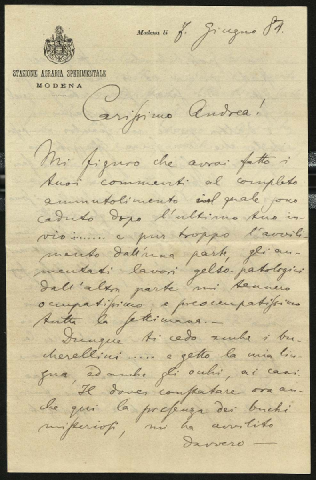 Modena li 7. Giugno 81.
STAZIONE AGRARIA SPERIMENTALE
MODENA
Carissimo Andrea!
Mi figuro che avrai fatto i
tuoi commenti al completo
ammutolimento nel quale sono
caduto dopo l'ultimo tuo in-
vio ...... pur troppo l'avvili-
mento dall'una parte, gli au-
mentati lavori gelso-patologici
dall'altra parte mi tennero
occupatissimo e preoccupatissimo
tutta la settimana. —
Dunque ti cedo anche i bu-
cherellini .... e getto la mia lin-
gua, ed anche gli occhi, ai cani.
Il dover constatare ora an-
che qui la presenza dei buchi
misteriosi, mi ha avvilito
davvero —